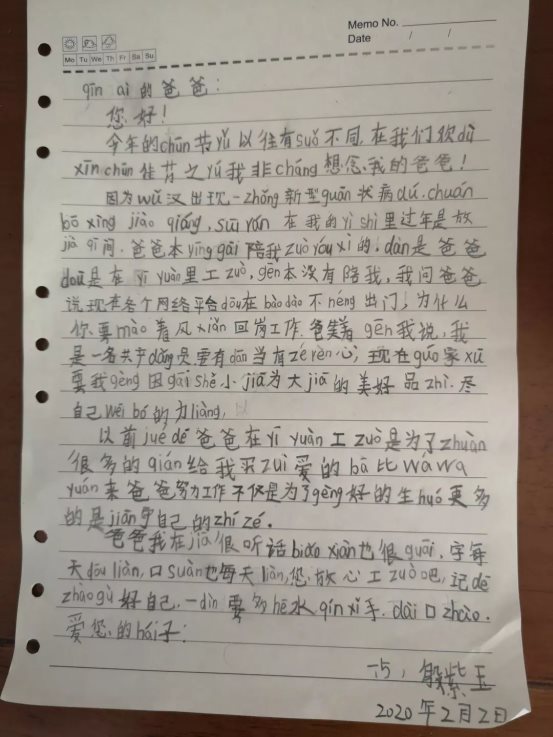 Memo No.
Date / /
Mo Tu We Th Fr Sa Su
qīn ài 的爸爸:
您好!
今年的chūn节yǔ以往有suǒ不同,在我们欢dù
xīn chūn佳节之yú我非cháng想念我的爸爸!
因为wǔ汉出现一zhǒng新型guān状病dú.chuán
bō xìng jiào qiáng,suī rán 在我的yì shi里过年是放
jià qī间,爸爸本yīng gāi陪我zuò yóu xì的;dàn是爸爸
dōu是在yī yuàn里工zuò,gēn本没有陪我,我问爸爸
说现在各个网络平台dōu在bào dào不néng出门,为什么
你要mào着风xiǎn回岗工作.爸笑着gēn我说,我
是一名共产dǎng员,要有dān当有zé rèn心;现在guó家xū
要我gèng因gāi shě小jiā为大jiā的美好品zhì.尽
自己wēi bó的力liàng,
以前jué dé爸爸在yī yuàn工zuò是为了zhuàn
很多的qián给我买zuì爱的bā比wá wa
yuán来爸爸努力工作不仅是为了gèng好的生huó更多
的是jiān守自己的zhí zé.
爸爸我在jiā很听话biǎo xiàn也很guāi.字每
天dōu liàn,口suàn也每天liàn,您放心工zuò吧,记dé
zhào gù好自己.一dìn要多hē水qín xǐ手.dài口zhào.
爱您的hái子:
一5,殷紫玉
2020年2月2日